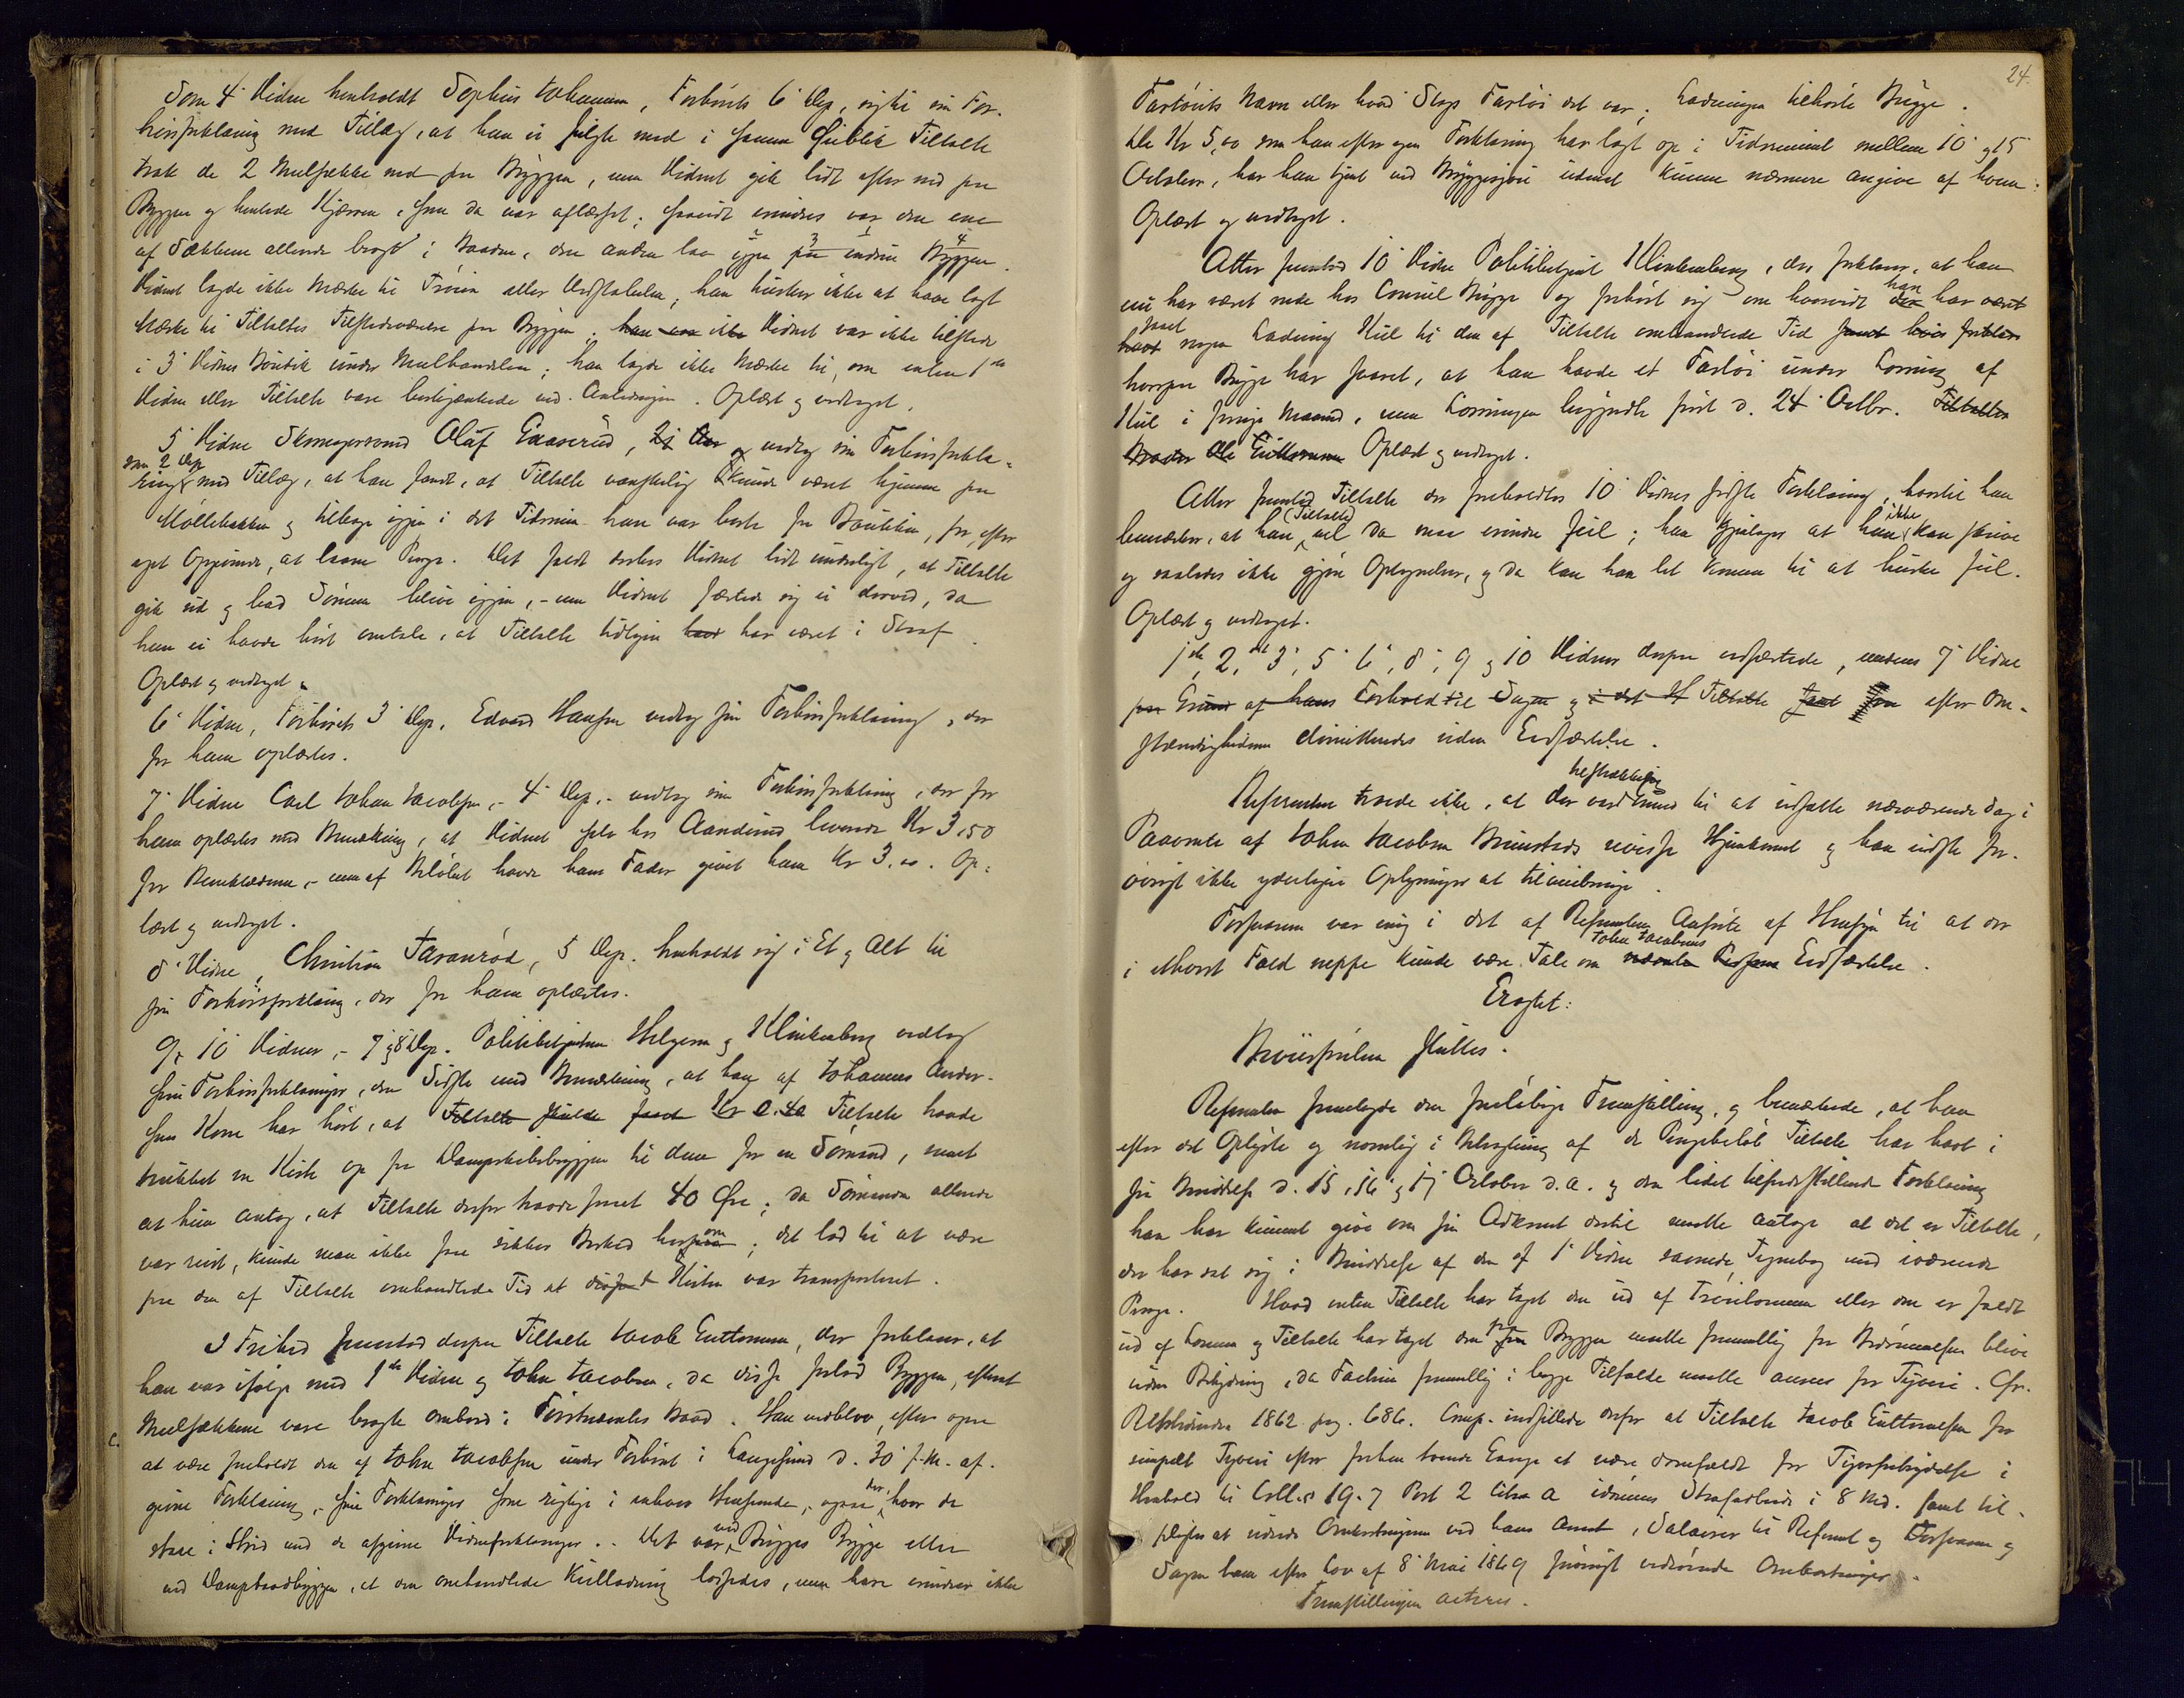 Som 4de Vidne henholdt Sophus Johansen, Forhørets 6' Dep, sig til sin For-
hørsforklaring med Tillæg, at han ei fulgte med i samme Øieblik Tiltalte
trak de 2 Melsække ned paa Bryggen, men Vidnet gik lidt efter ned paa
Bryggen og hentede Kjærren, som da var aflæsset; saavidt erindres var den ene
af Sækkene allerede bragt i Baaden, den anden laa igjen paa indre Bryggen.
Vidnet lagde ikke Mærke til Trøien eller Vedstabelen; han husker ikke at have lagt
Mærke til Tiltaltes Tilstedeværelse paa Bryggen; han var ikke Vidnet var ikke tilstede
i 3' Vidnes Boutik under Melhandelen; han lagde ikke Mærke til, om enten 1ste
Vidne eller Tiltalte vare beskjænkede ved Anledningen. Oplæst og vedtaget.
5' Vidne Skomagersvend Olaf Gaaserud, 21 Aar og vedtog sin Forhørsforkla-
som 2 Dep
ring med Tillæg, at han fandt, at Tiltalte vanskelig kunde været hjemme paa
Møllebakken og tilbage igjen i det Tidsrum han var borte fra Boutikken, for, efter
eget Opgivende, at laane Penge. Det faldt derhos Vidnet lidt underligt, at Tiltalte
gik ud og bad Sønnen blive igjen, - men Vidnet fæstede sig ei derved, da
han ei havde hørt omtale, at Tiltalte tidligere havd har været i Straf.
Oplæst og vedtaget.
6' Vidne, Forhørets 3' Dep. Edvard Hansen vedtog sin Forhørsforklaring, der
for ham oplæstes.
7' Vidne Carl Johan Jacobsen, - 4' Dep, - vedtog sin Forhørsforklaring, der for
ham oplæstes med Bemærkning, at Vidnet selv hos Aanderud leverede Kr 3,50
for Benklæderne, - men af Beløbet havde hans Fader givet ham Kr 3.00. Op-
læst og vedtaget.
8' Vidne, Christian Taranrød, 5 Dep. henholdt sig i Et og Alt til
sin Forhørsforklaring, der for ham oplæstes.
9 & 10' Vidner, - 7' og 8' Dep. Politibetjentene Helgesen og Klinkenberg vedtog
sine Forhørsforklaringer, den Sidste med Bemærkning, at han af Johannes Ander-
sens Kone har hørt, at Tiltalte skulde faaet Kr 0.40 Tiltalte havde
trukket en Kiste op fra Dampskibsbryggen til dem for en Sømand, samt
at hun antog, at Tiltalte derfor havde faaet 40 Øre; da Sømanden allerede
var reist, kunde man ikke faa sikker Besked herom; det lod til at være
paa den af Tiltalte omhandlede Tid at Kisten var transporteret.
I Frihed fremstod derpaa Tiltalte Jacob Guttormsen, der forklarer, at
han var ifølge med 1ste Vidne og John Jacobsen, da disse forlod Bryggen, efterat
Melsækkene vare bragte ombord i Førstnævntes Baad. Han vedblev, efter ogsaa
at være foreholdt den af John Jacobsen under Forhøret i Langesund d. 30' f.M. af-
givne Forklaring, sine Forklaringer som rigtige i enhver Henseende, ogsaa der, hvor de
staae i Strid med de afgivne Vidneforklaringer. Det var ved Brygges Brygge eller
ved Dampbaadbryggen, at den omhandlede Kulladning lossedes, men han erindrer ikke
24.
Fartøiets Navn eller hvad Slags Fartøi det var; Ladningen tilhørte Brygge.
De Kr 5,00 som han efter egen Forklaring har lagt op i Tidsrummet mellem 10' og 15
October, har han tjent ved Bryggesjou uden at kunne nærmere angive af hvem.
Oplæst og vedtaget.
Atter fremstod 10' Vidne Politibetjent Klinkenberg, der forklarer, at han
nu har været nede hos Consul Brygge og forhørt sig om hvorvidt han har
faaet nogen Ladning Kul til den af Tiltalte omhandlede Tid
hvorpaa Brygge har svaret, at han havde et Fartøi under Losning af
Kul i forrige Maaned, men Losningen begyndte først d. 24' Octbr. Tiltaltes
Broder Ole Guttormsen Oplæst og vedtaget.
Atter fremstod Tiltalte der foreholdtes 10' Vidnes sidste Forklaring, hvortil han
bemærker, at han (Tiltalte) vel da maa erindre feil; han gjentager at han ikke kan skrive
og saaledes ikke gjøre Optegnelser, og da kan han let komme til at huske feil.
Oplæst og vedtaget.
1ste, 2det, 3', 5' 6', 8', 9 og 10 Vidner derpaa edfæstede, medens 7' Vidne
paa Grund af hans Forhold til Sagen og Tiltalte efter Om-
stændighederne dimitteredes uden Edfæstelse.
Referenten troede ikke, at der var tilstrækkelig Grund til at udsætte nærværende Sag i
Paavente af John Jacobsen Brunsteds uvisse Hjemkomst og han vidste for-
øvrigt ikke yderligere Oplysninger at tilveiebringe.
Forsvareren var enig i det af Referenten Anførte af Hensyn til at der
i ethvert Fald neppe kunde være Tale om John Jacobsens Edfæstelse.
Eragtet:
Bevisførselen sluttes.
Referenten fremlagde den foreløbige Fremstilling, og bemærkede, at han
efter det Oplyste og navnlig i Betragtning af de Pengebeløb Tiltalte har havt i
sin Besiddelse d. 15, 16' og 17 October d.A. og den lidet tilfredsstillende Forklaring
han har kunnet give om sin Adkomst dertil maatte antage at det er Tiltalte,
der har sat sig i Besiddelse af den af 1' Vidne savnede Tegnebog med iværende
Penge. Hvad enten Tiltalte har taget den ud af Trøielommen eller den er faldt
ud af Lommen og Tiltalte har taget den fra Bryggen maatte formentlig for Bedømmelsen blive
uden Betydning, da Factum formentlig i begge Tilfælde maatte ansees for Tyveri. Cfr.
Retstidende 1862 pag. 686. Comp. indstillede derfor at Tiltalte Jacob Guttormsen for
simpelt Tyveri efter forhen tvende Gange at være domfældt for Tyvsforbrydelse i
Henhold til Crll.s 19-7 Post 2 Litra a idømmes Strafarbeide i 8 Md. samt til-
pligtes at udrede Omkostningerne ved hans Arrest, Salairer til Referent og Forsvarer og
Sagen hans efter Lov af 8' Mai 1869 forøvrigt vedrørende Omkostninger.
Fremstillingen acteres.